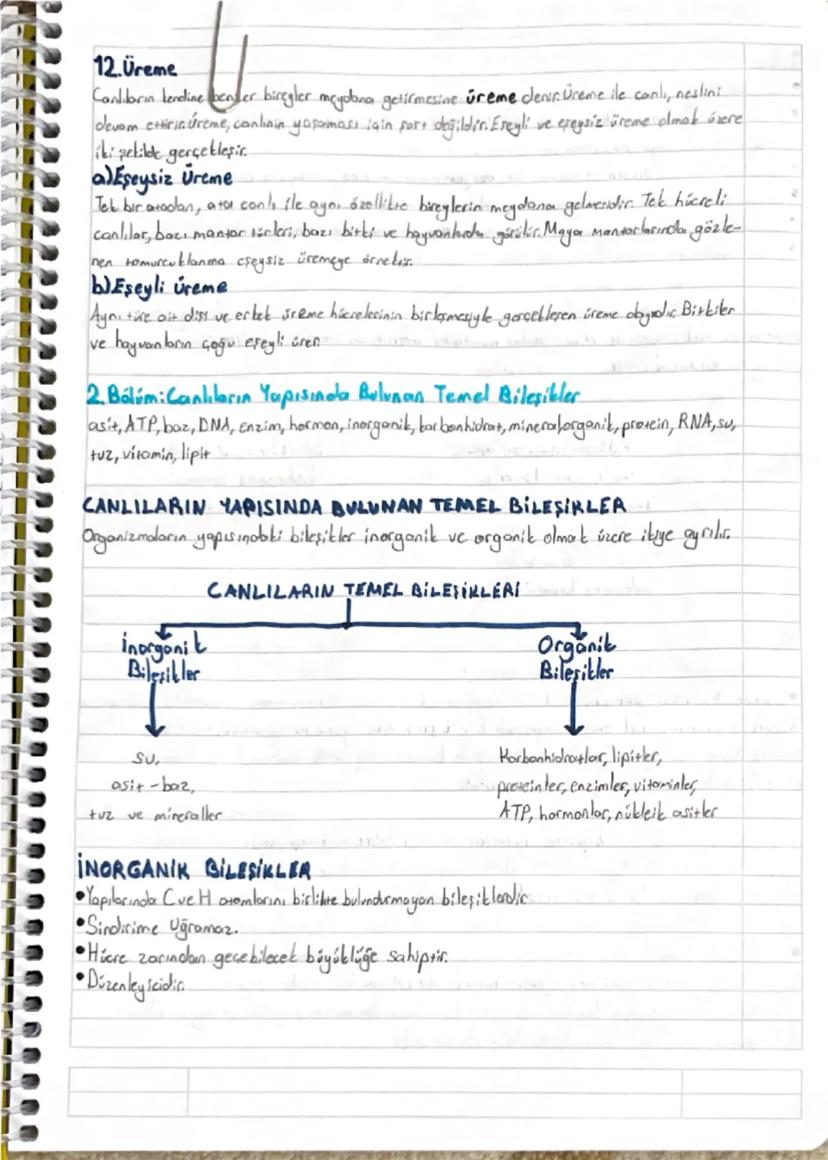 12.Üreme
Canlıların kendine benzer bireyler meydana getirmesine üreme denir.Üreme ile canlı, neslini
devam ettirir.Üreme, canlının yaşaması için şart değildir.Eşeyli ve eşeysiz üreme olmak üzere
iki şekilde gerçekleşir.
a)Eşeysiz Üreme
Tek bir atadan, ata canlı ile aynı özellikte bireylerin meydana gelmesidir. Tek hücreli
canlılar, bazı mantar türleri, bazı bitki ve hayvanlarda görülür. Maya mantarlarında gözle-
nen tomurcuklanma eşeysiz üremeye örnektir.
b)Eşeyli üreme
Aynı türe ait dişi ve erkek üreme hücrelerinin birleşmesiyle gerçekleşen üreme olayıdır. Bitkiler
ve hayvanların çoğu eşeyli ürer.
2.Bölüm:Canlıların Yapısında Bulunan Temel Bileşikler
asit, ATP, baz, DNA, enzim, hormon, inorganik, karbonhidrat, mineral,organik, protein, RNA, su,
tuz, vitamin, lipit
CANLILARIN YAPISINDA BULUNAN TEMEL BİLEŞİKLER
Organizmaların yapısındaki bileşikler inorganik ve organik olmak üzere ikiye ayrılır.
CANLILARIN TEMEL BİLEŞİKLERİ
İnorganik
Bileşikler
Organik
Bileşikler
su,
asit-baz,
tuz ve mineraller
Karbonhidratlar, lipitler,
proteinler, enzimler, vitaminler,
ATP, hormonlar, nükleik asitler
İNORGANİK BİLEŞİKLER
•Yapılarında C ve H atomlarını birlikte bulundurmayan bileşiklerdir.
•Sindirime uğramaz.
•Hücre zarından geçebilecek büyüklüğe sahiptir.
•Düzenleyicidir.